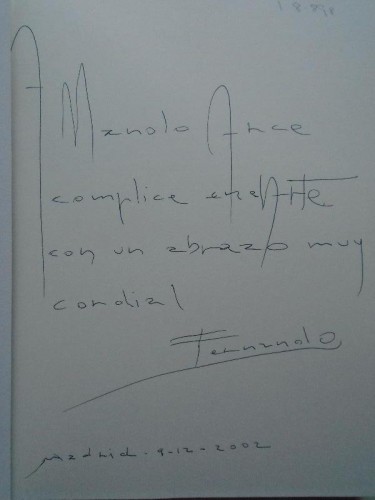 A Manolo Arce
complice en el Arte
con un abrazo muy
cordial
Fernando
Madrid - 9-12-2002